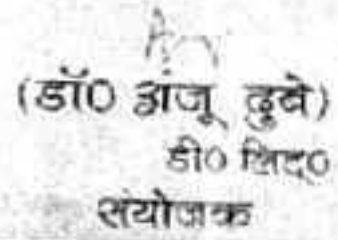 (डॉ0 अंजू दुबे)
डी0 लिट्0
संयोजक